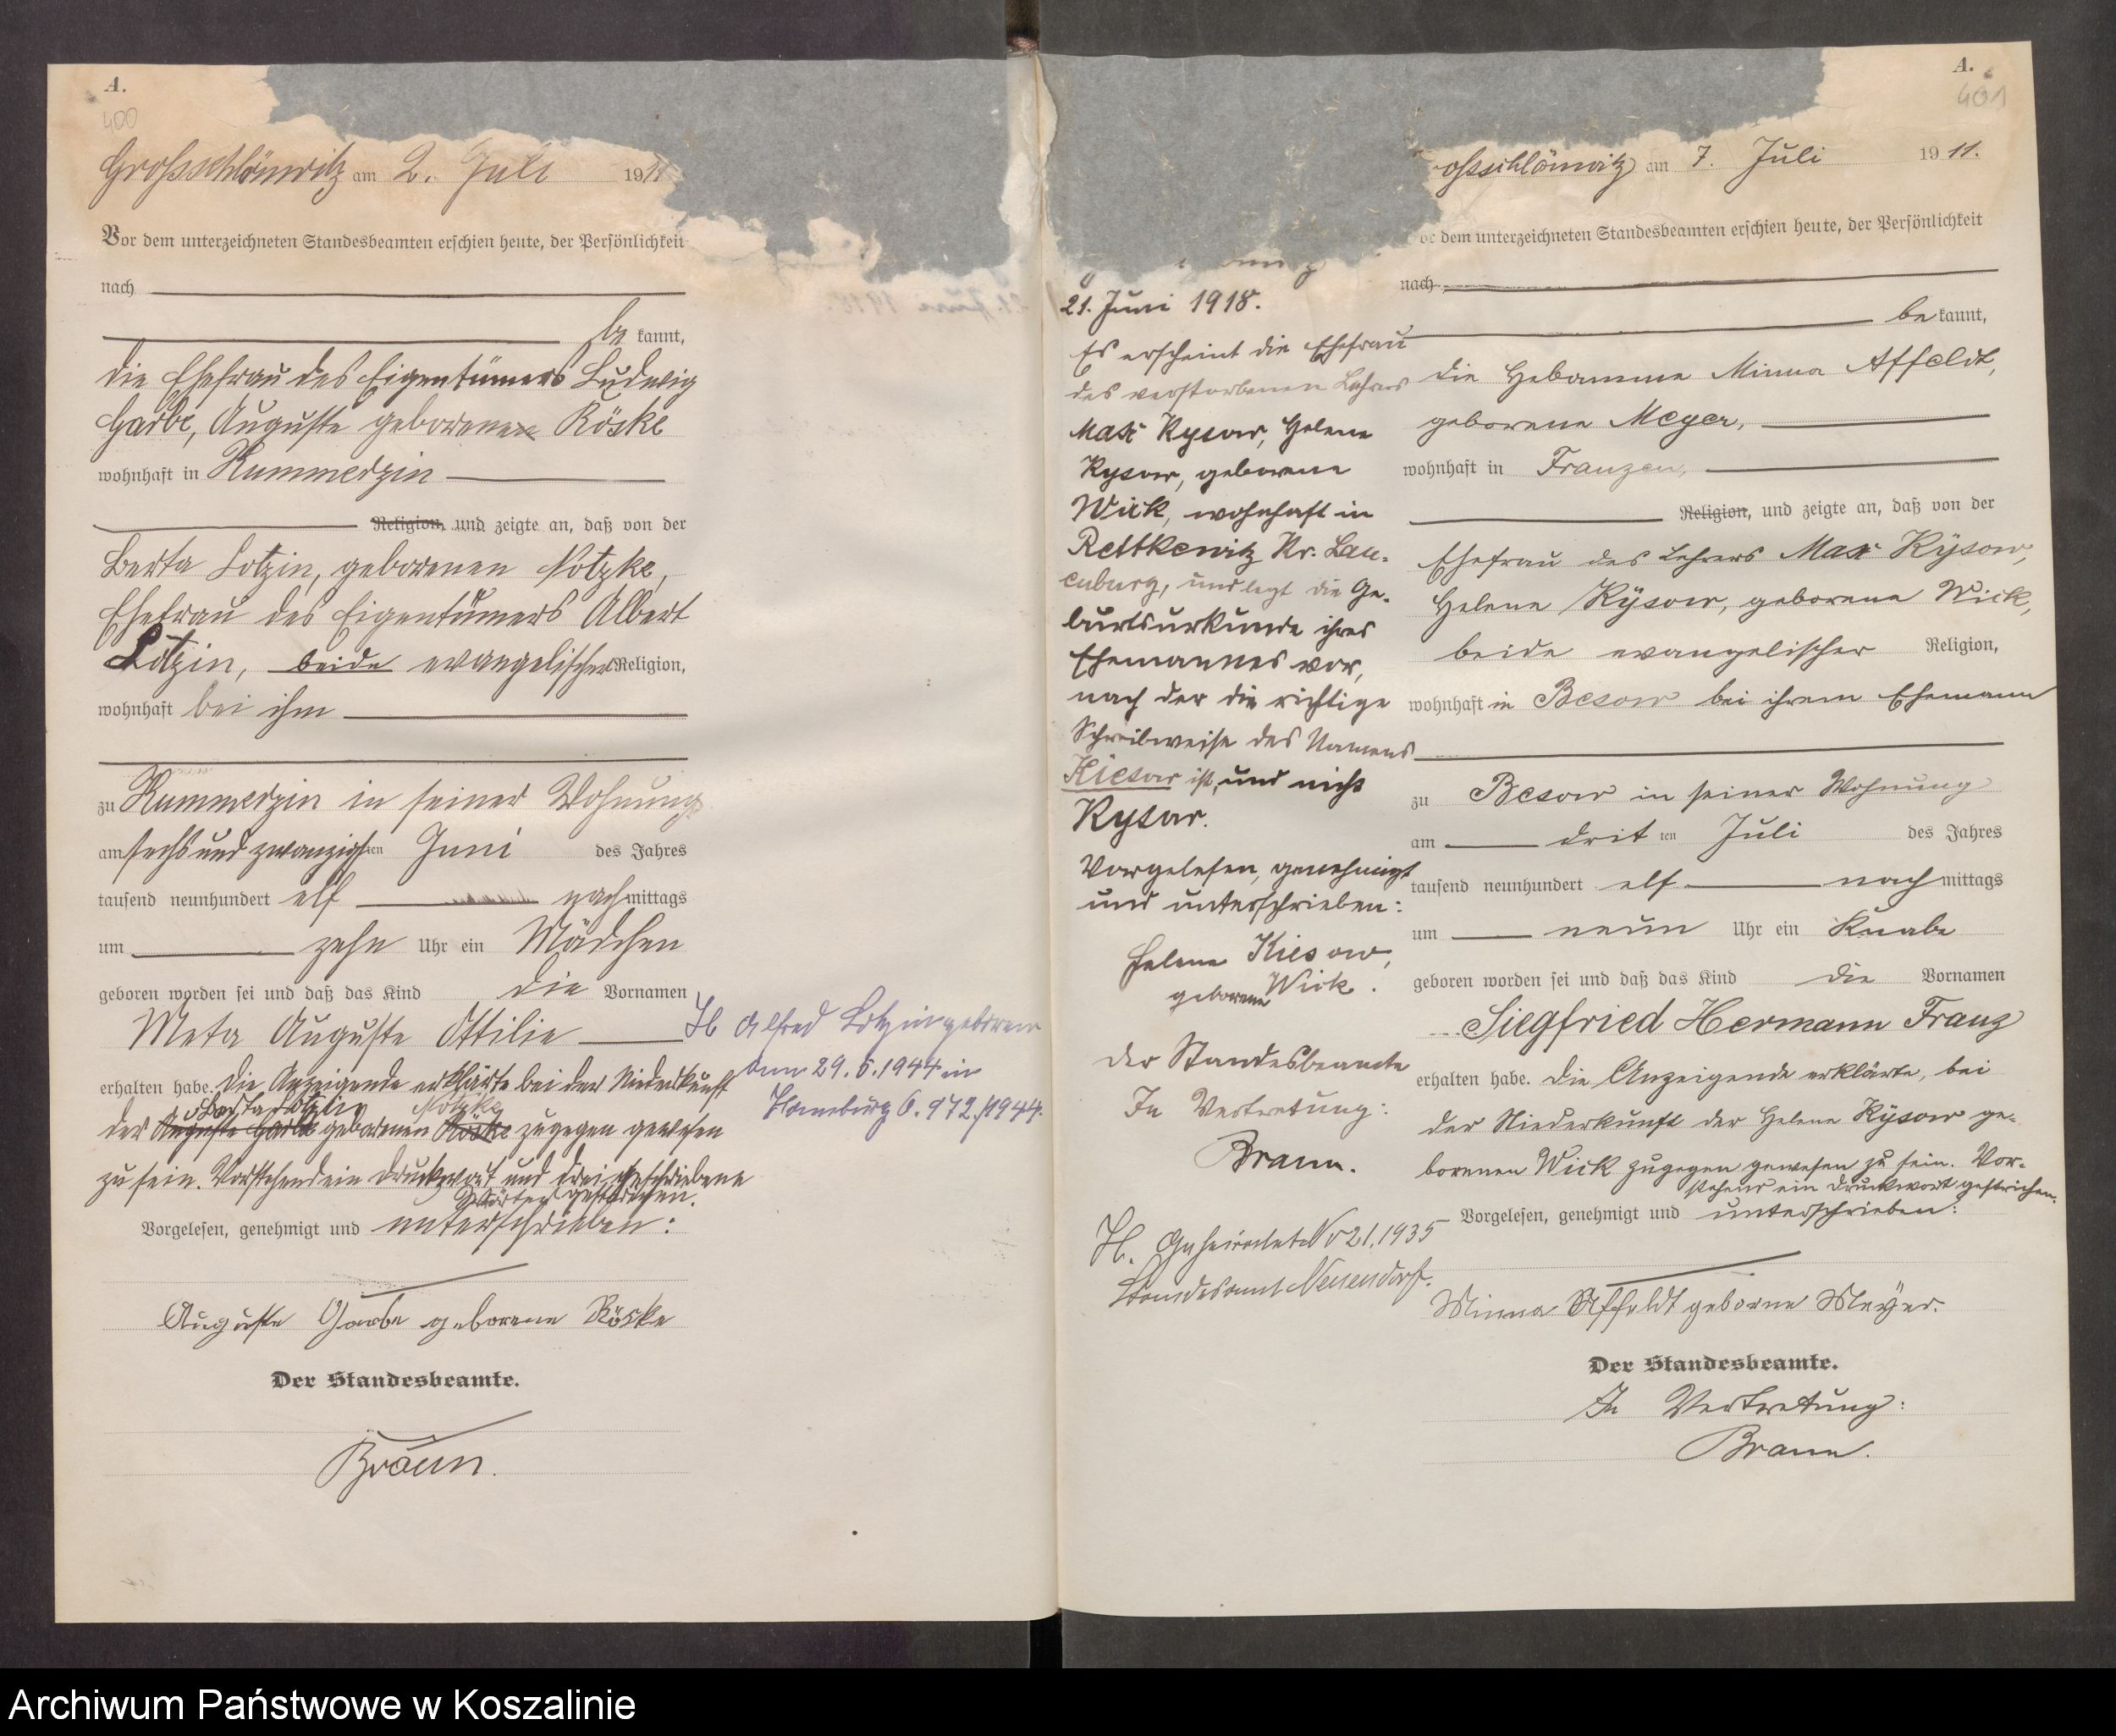 A.
400
Grossschlönwitz am 2. Juli 1911
Vor dem unterzeichneten Standesbeamten erschien heute, der Persönlichkeit
nach
be kannt,
die Ehefrau des Eigentümers Ludwig
Garbe, Auguste geborenen Röske
wohnhaft in Kummerzin
Religion, und zeigte an, daß von der
Berta Lotzin, geborenen Notzke,
Ehefrau des Eigentümers Albert
Lotzin, beide evangelischer Religion,
wohnhaft bei ihm
zu Kummerzin in seiner Wohnung
am sechs und zwanzigsten Juni des Jahres
tausend neunhundert elf nach mittags
um zehn Uhr ein Mädchen
geboren worden sei und daß das Kind die Vornamen
Meta Auguste Ottilie
erhalten habe. Die Anzeigende erklärte bei der Niederkunft
Berta Lotzin Notzke
der Auguste Garbe geborenen Röske zugegen gewesen
zu sein. Vorstehend ein Druckwort und drei geschriebene
Wörter gestrichen.
Vorgelesen, genehmigt und unterschrieben:
Auguste Garbe geborene Röske
Der Standesbeamte.
Braun.
H Alfred Lotzin geboren
am 29.6.1944 in
Hamburg 6. 972/1944.
21. Juni 1918.
Es erscheint die Ehefrau
des verstorbenen Lehrers
Max Rysow, Helene
Rysow, geborene
Wick, wohnhaft in
Rettkewitz Kr. Lau-
enburg, und legt die Ge-
burtsurkunde ihres
Ehemannes vor,
nach der die richtige
Schreibweise des Namens
Kiesow ist, und nicht
Rysow.
Vorgelesen, genehmigt
und unterschrieben:
Helene Kiesow,
geborene Wick.
Der Standesbeamte
In Vertretung:
Braun.
H. Geheiratet Nr 21.1935
Standesamt Neuendorf.
A.
401
ossschlönwitz am 7. Juli 1911.
or dem unterzeichneten Standesbeamten erschien heute, der Persönlichkeit
nach
be kannt,
die Hebamme Minna Affeldt,
geborene Meyer,
wohnhaft in Franzen,
Religion, und zeigte an, daß von der
Ehefrau des Lehrers Max Rÿsow,
Helene Rÿsow, geborene Wick,
beide evangelischer Religion,
wohnhaft in Besow bei ihrem Ehemann
zu Besow in seiner Wohnung
am drit ten Juli des Jahres
tausend neunhundert elf nach mittags
um neun Uhr ein Knabe
geboren worden sei und daß das Kind die Vornamen
Siegfried Hermann Franz
erhalten habe. Die Anzeigende erklärte, bei
der Niederkunft der Helene Rÿsow ge-
borenen Wick zugegen gewesen zu sein. Vor-
stehend ein Druckwort gestrichen.
Vorgelesen, genehmigt und unterschrieben:
Minna Affeldt geborne Meÿer.
Der Standesbeamte.
In Vertretung:
Braun.
Archiwum Państwowe w Koszalinie